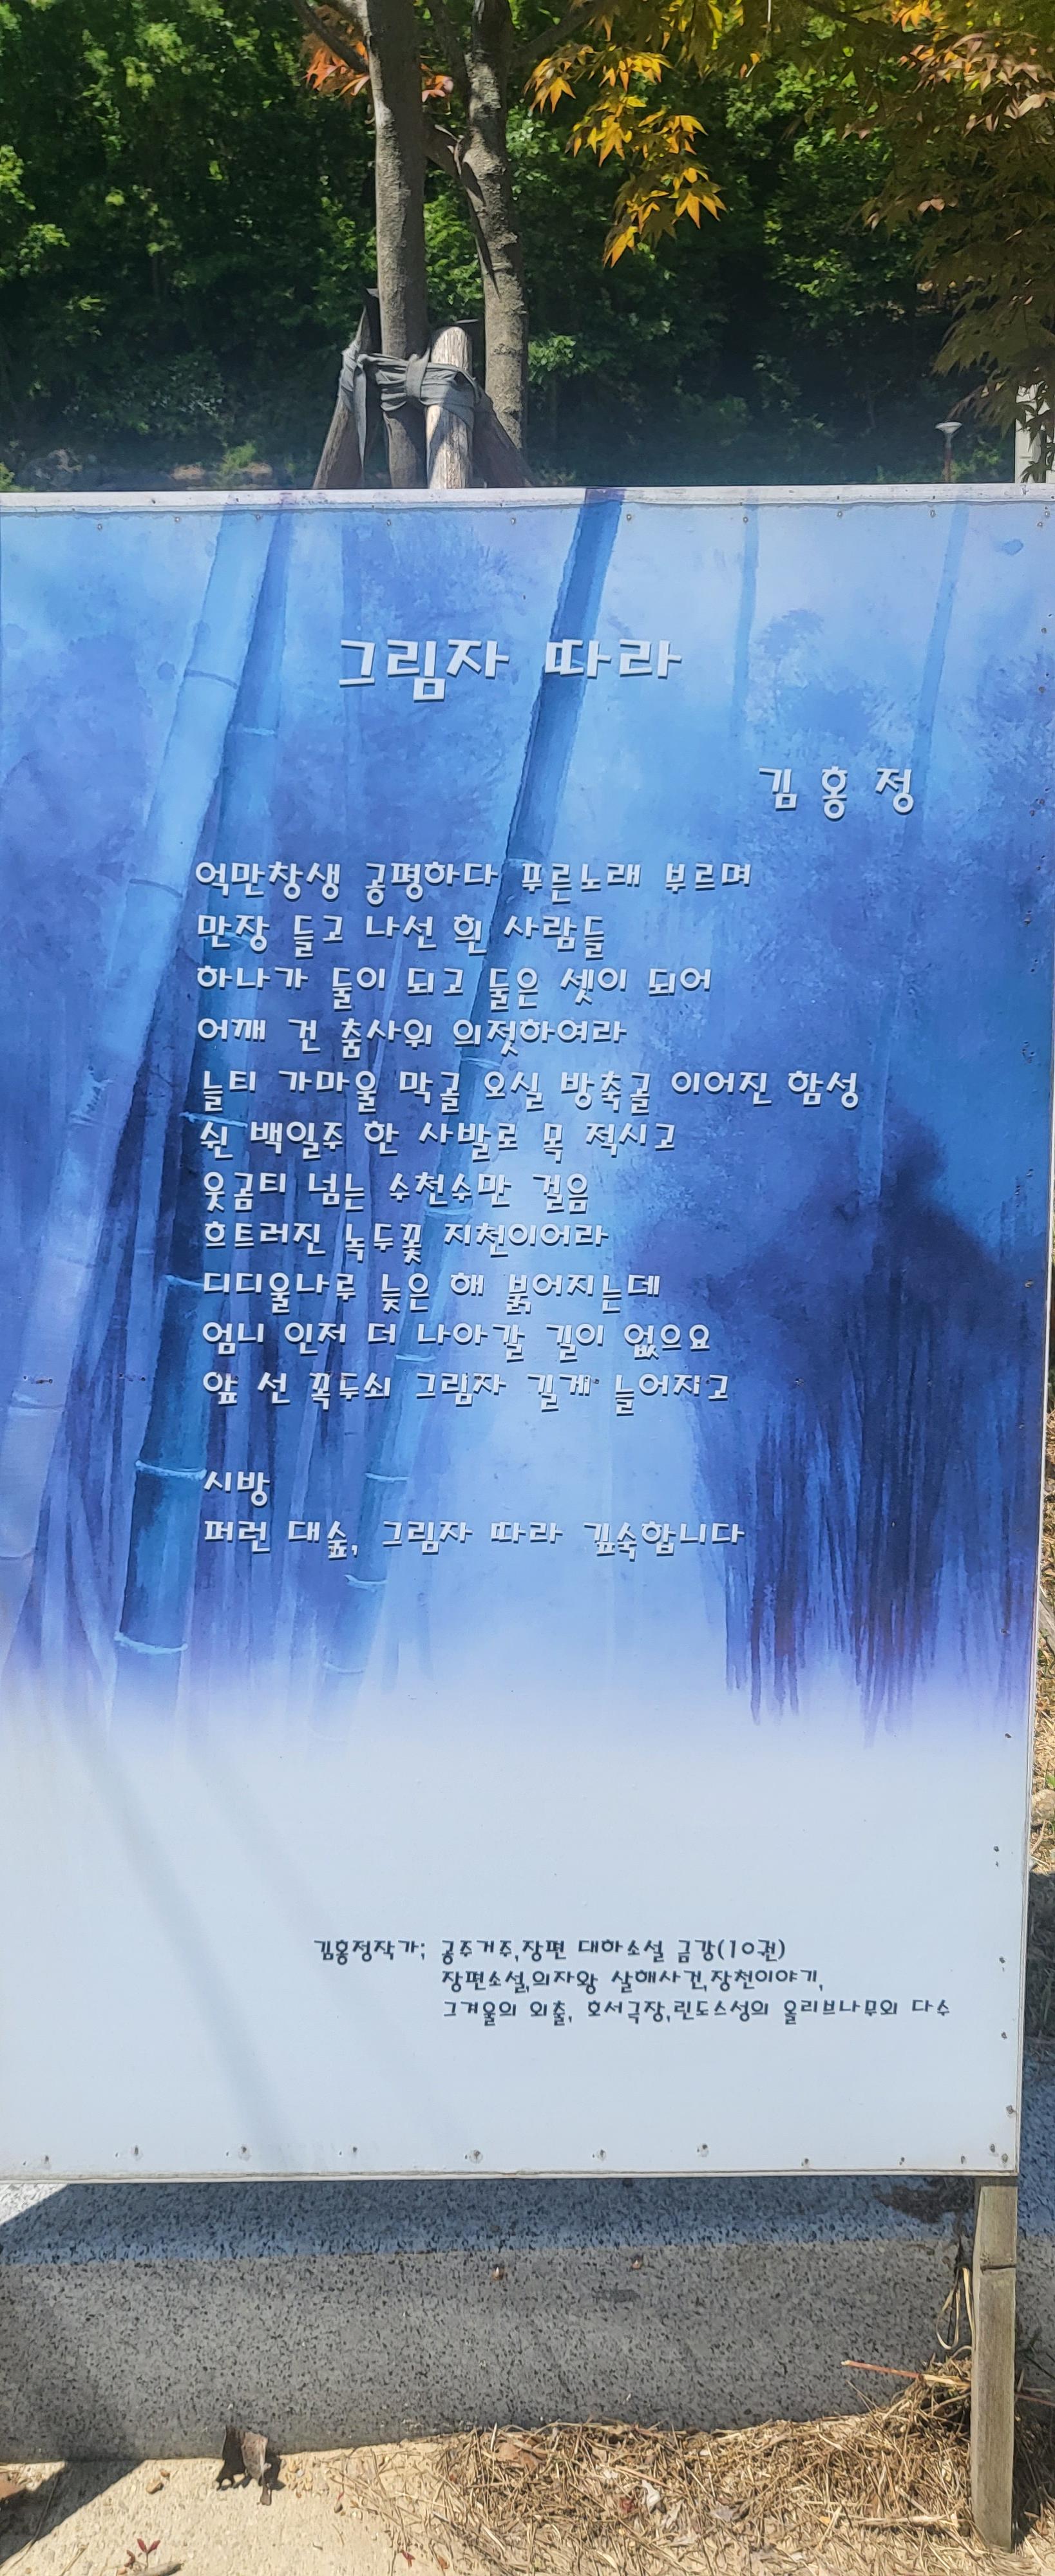 그림자 따라
김 홍 정
억만창생 공평하다 푸른노래 부르며
만장 들고 나선 흰 사람들
하나가 둘이 되고 둘은 셋이 되어
어깨 건 춤사위 의젓하여라
늘티 가마울 막골 오실 방축골 이어진 함성
쉰 백일주 한 사발로 목 적시고
웃곰티 넘는 수천수만 걸음
흐트러진 녹두꽃 지천이어라
디디울나루 늦은 해 붉어지는데
엄니 인저 더 나아갈 길이 없으요
앞 선 꼭두쇠 그림자 길게 늘어지고
시방
퍼런 대숲, 그림자 따라 깊숙합니다
김홍정작가; 공주거주,장편 대하소설 금강(10권)
장편소설,의자왕 살해사건,장천이야기,
그겨울의 외출, 호서극장,린도스성의 올리브나무외 다수